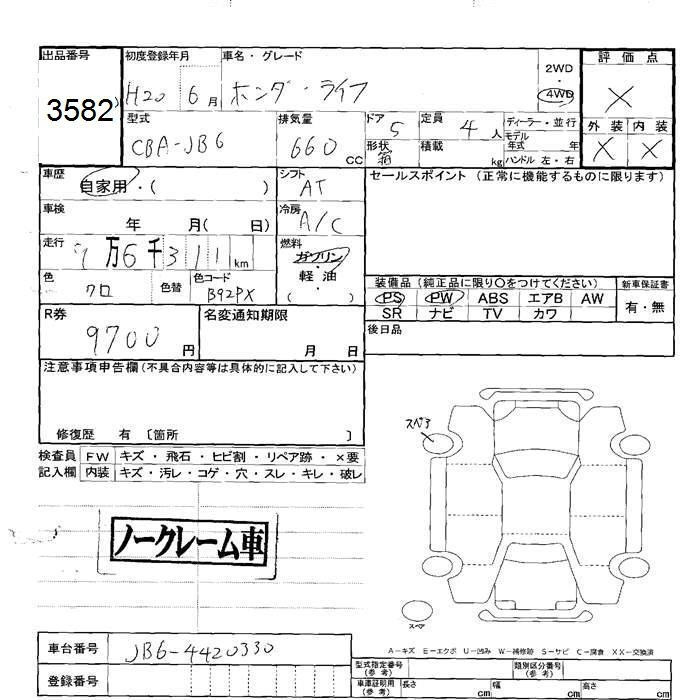 出品番号 初度登録年月 車名・グレード 2WD 評価点
3582 H20 6月 ホンダ・ライフ 4WD ×
型式 排気量 ドア 定員 ディーラー・並行 外装 内装
CBA-JB6 660 CC 5 4 人 モデル年式 年 × ×
形状 箱 積載 kg ハンドル 左・右
車歴 自家用・( ) シフト AT セールスポイント (正常に機能するものに限ります)
車検 年 月( 日) 冷房 A/C
走行 万6千311km 燃料 ガソリン・軽油 ( )
色 クロ 色替 色コード B92PX 装備品 (純正品に限り○をつけてください) 新車保証書
PS PW ABS エアB AW 有・無
SR ナビ TV カワ
R券 9700円 名変通知期限 月 日 後日品
注意事項申告欄 (不具合内容等は具体的に記入して下さい)
修復歴 有 〔箇所 〕 スペア
検査員 FW キズ・飛石・ヒビ割・リペア跡・×要
記入欄 内装 キズ・汚レ・コゲ・穴・スレ・キレ・破レ
ノークレーム車
スペア
A-キズ E-エクボ U-凹み W-補修跡 S-サビ C-腐食 XX-交換済
車台番号 JB6-4420330 型式指定番号(参考) 類別区分番号(参考)
登録番号 車庫証明用(参考) 長さ cm 幅 cm 高さ cm